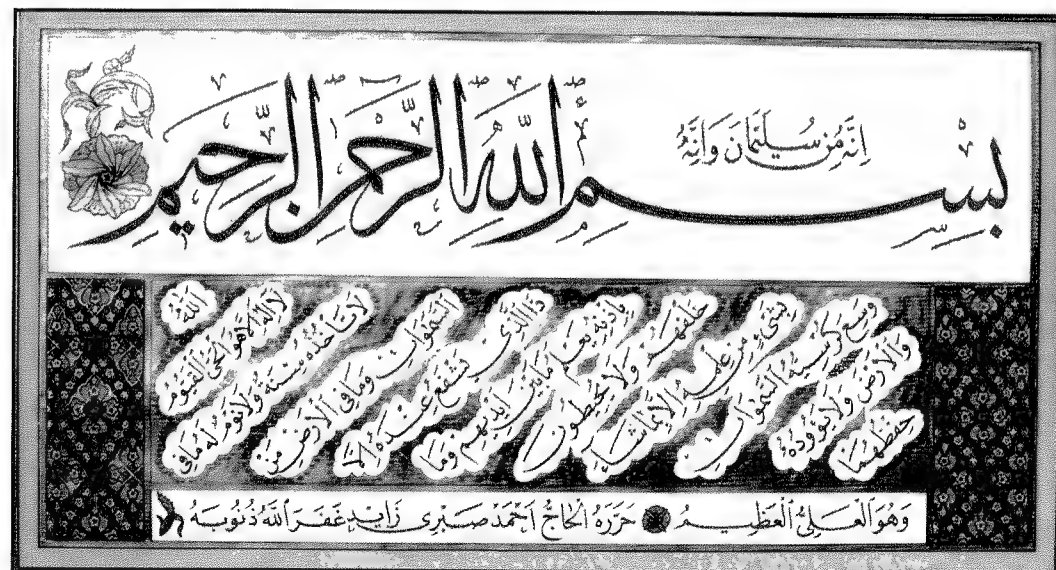 اِنَّهُ مِنْ سُلَيْمَانَ وَاِنَّهُ
بِسْمِ اللهِ الرَّحْمنِ الرَّحِيمِ
اَللهُ
لَا اِلهَ اِلَّا هُوَ الْحَيُّ الْقَيُّومُ
لَا تَأْخُذُهُ سِنَةٌ وَلَا نَوْمٌ لَهُ مَا فِى
السَّمٰوَاتِ وَمَا فِى الْاَرْضِ مَنْ
ذَا الَّذِى يَشْفَعُ عِنْدَهُ اِلَّا
بِاِذْنِهِ يَعْلَمُ مَا بَيْنَ اَيْدِيهِمْ وَمَا
خَلْفَهُمْ وَلَا يُحِيطُونَ
بِشَىْءٍ مِنْ عِلْمِهِ اِلَّا بِمَا شَاءَ
وَسِعَ كُرْسِيُّهُ السَّمٰوَاتِ
وَالْاَرْضَ وَلَا يَؤُودُهُ
حِفْظُهُمَا
وَهُوَ الْعَلِىُّ الْعَظِيمُ حَرَّرَهُ الْحَاجُّ اَحْمَدْ صَبْرِى زَايِدْ غَفَرَ اللهُ ذُنُوبَهُ